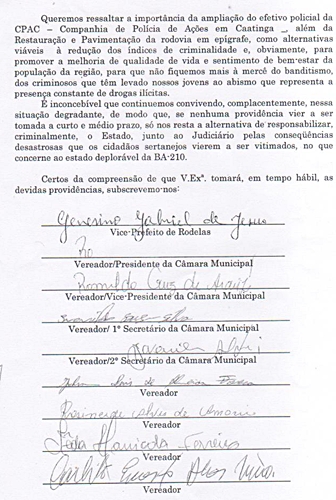 Queremos ressaltar a importância da ampliação do efetivo policial da
CPAC – Companhia de Polícia de Ações em Caatinga , além da
Restauração e Pavimentação da rodovia em epígrafe, como alternativas
viáveis à redução dos índices de criminalidade e, obviamente, para
promover a melhoria de qualidade de vida e sentimento de bem-estar da
população da região, para que não fiquemos mais à mercê do banditismo,
dos criminosos que têm levado nossos jovens ao abismo que representa a
presença constante de drogas ilícitas.
É inconcebível que continuemos convivendo, complacentemente, nessa
situação degradante, de modo que, se nenhuma providência vier a ser
tomada a curto e médio prazo, só nos resta a alternativa de responsabilizar,
criminalmente, o Estado, junto ao Judiciário pelas conseqüências
desastrosas que os cidadãos sertanejos vierem a ser vitimados, no que
concerne ao estado deplorável da BA-210.
Certos da compreensão de que V.Exª. tomará, em tempo hábil, as
devidas providências, subscrevemo-nos:
Genesino Gabriel de Jesus
Vice-Prefeito de Rodelas
Vereador/Presidente da Câmara Municipal
Romildo Cruz de
Vereador/Vice-Presidente da Câmara Municipal
Vereador/ 1º Secretário da Câmara Municipal
Vereador/2º Secretário da Câmara Municipal
Vereador
Vereador
Vereador
Vereador